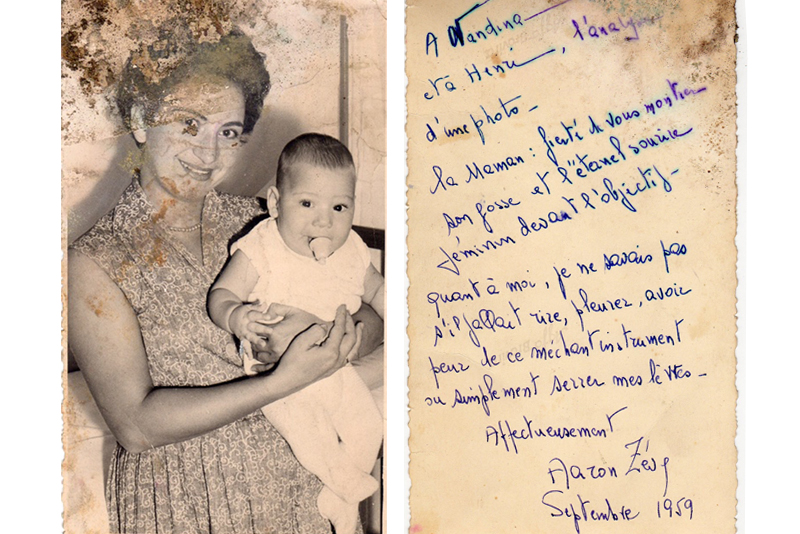 A Wandina
et à Henri, l'analyse
d'une photo -
la Maman : fierté de vous montrer
son gosse et l'éternel sourire
féminin devant l'objectif -
quant à moi, je ne savais pas
s'il fallait rire, pleurer, avoir
peur de ce méchant instrument
ou simplement serrer mes lèvres -
Affectueusement
Aaron Zévy
Septembre 1959